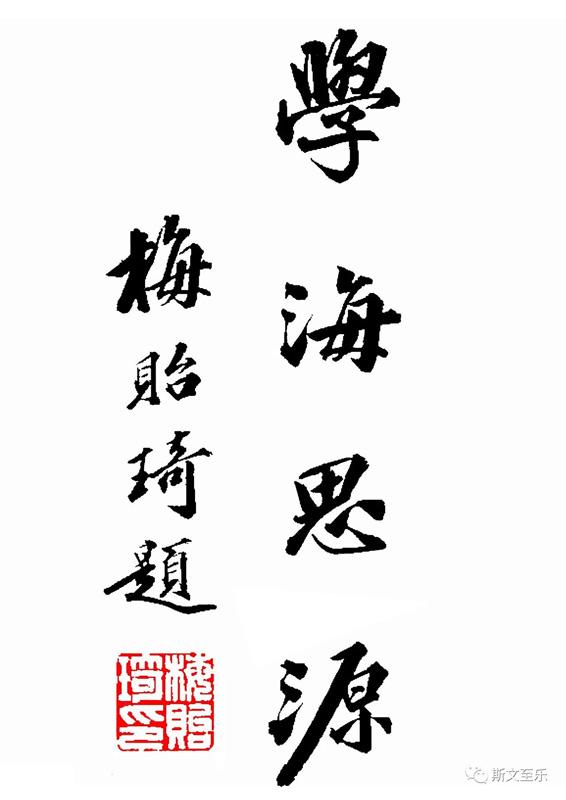 學海思源
梅貽琦題
梅貽琦印
斯文至乐